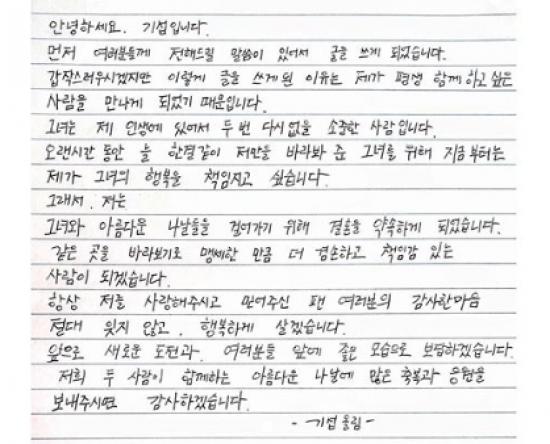 안녕하세요. 기섭입니다.
먼저 여러분들께 전해드릴 말씀이 있어서 글을 쓰게 되었습니다.
갑작스러우시겠지만 이렇게 글을 쓰게 된 이유는 제가 평생 함께 하고 싶은
사람을 만나게 되었기 때문입니다.
그녀는 제 인생에 있어서 두 번 다시 없을 소중한 사람입니다.
오랜시간 동안 늘 한결같이 저만을 바라봐 준 그녀를 위해 지금부터는
제가 그녀의 행복을 책임지고 싶습니다.
그래서. 저는
그녀와 아름다운 나날들을 걸어가기 위해 결혼을 약속하게 되었습니다.
같은 곳을 바라보기로 맹세한 만큼 더 겸손하고 책임감 있는
사람이 되겠습니다.
항상 저를 사랑해주시고 믿어주신 팬 여러분의 감사한마음
절대 잊지 않고. 행복하게 살겠습니다.
앞으로 새로운 도전과. 여러분들 앞에 좋은 모습으로 보답하겠습니다.
저희 두 사람이 함께하는 아름다운 나날에 많은 축복과 응원을
보내주시면 감사하겠습니다.
- 기섭 올림 -